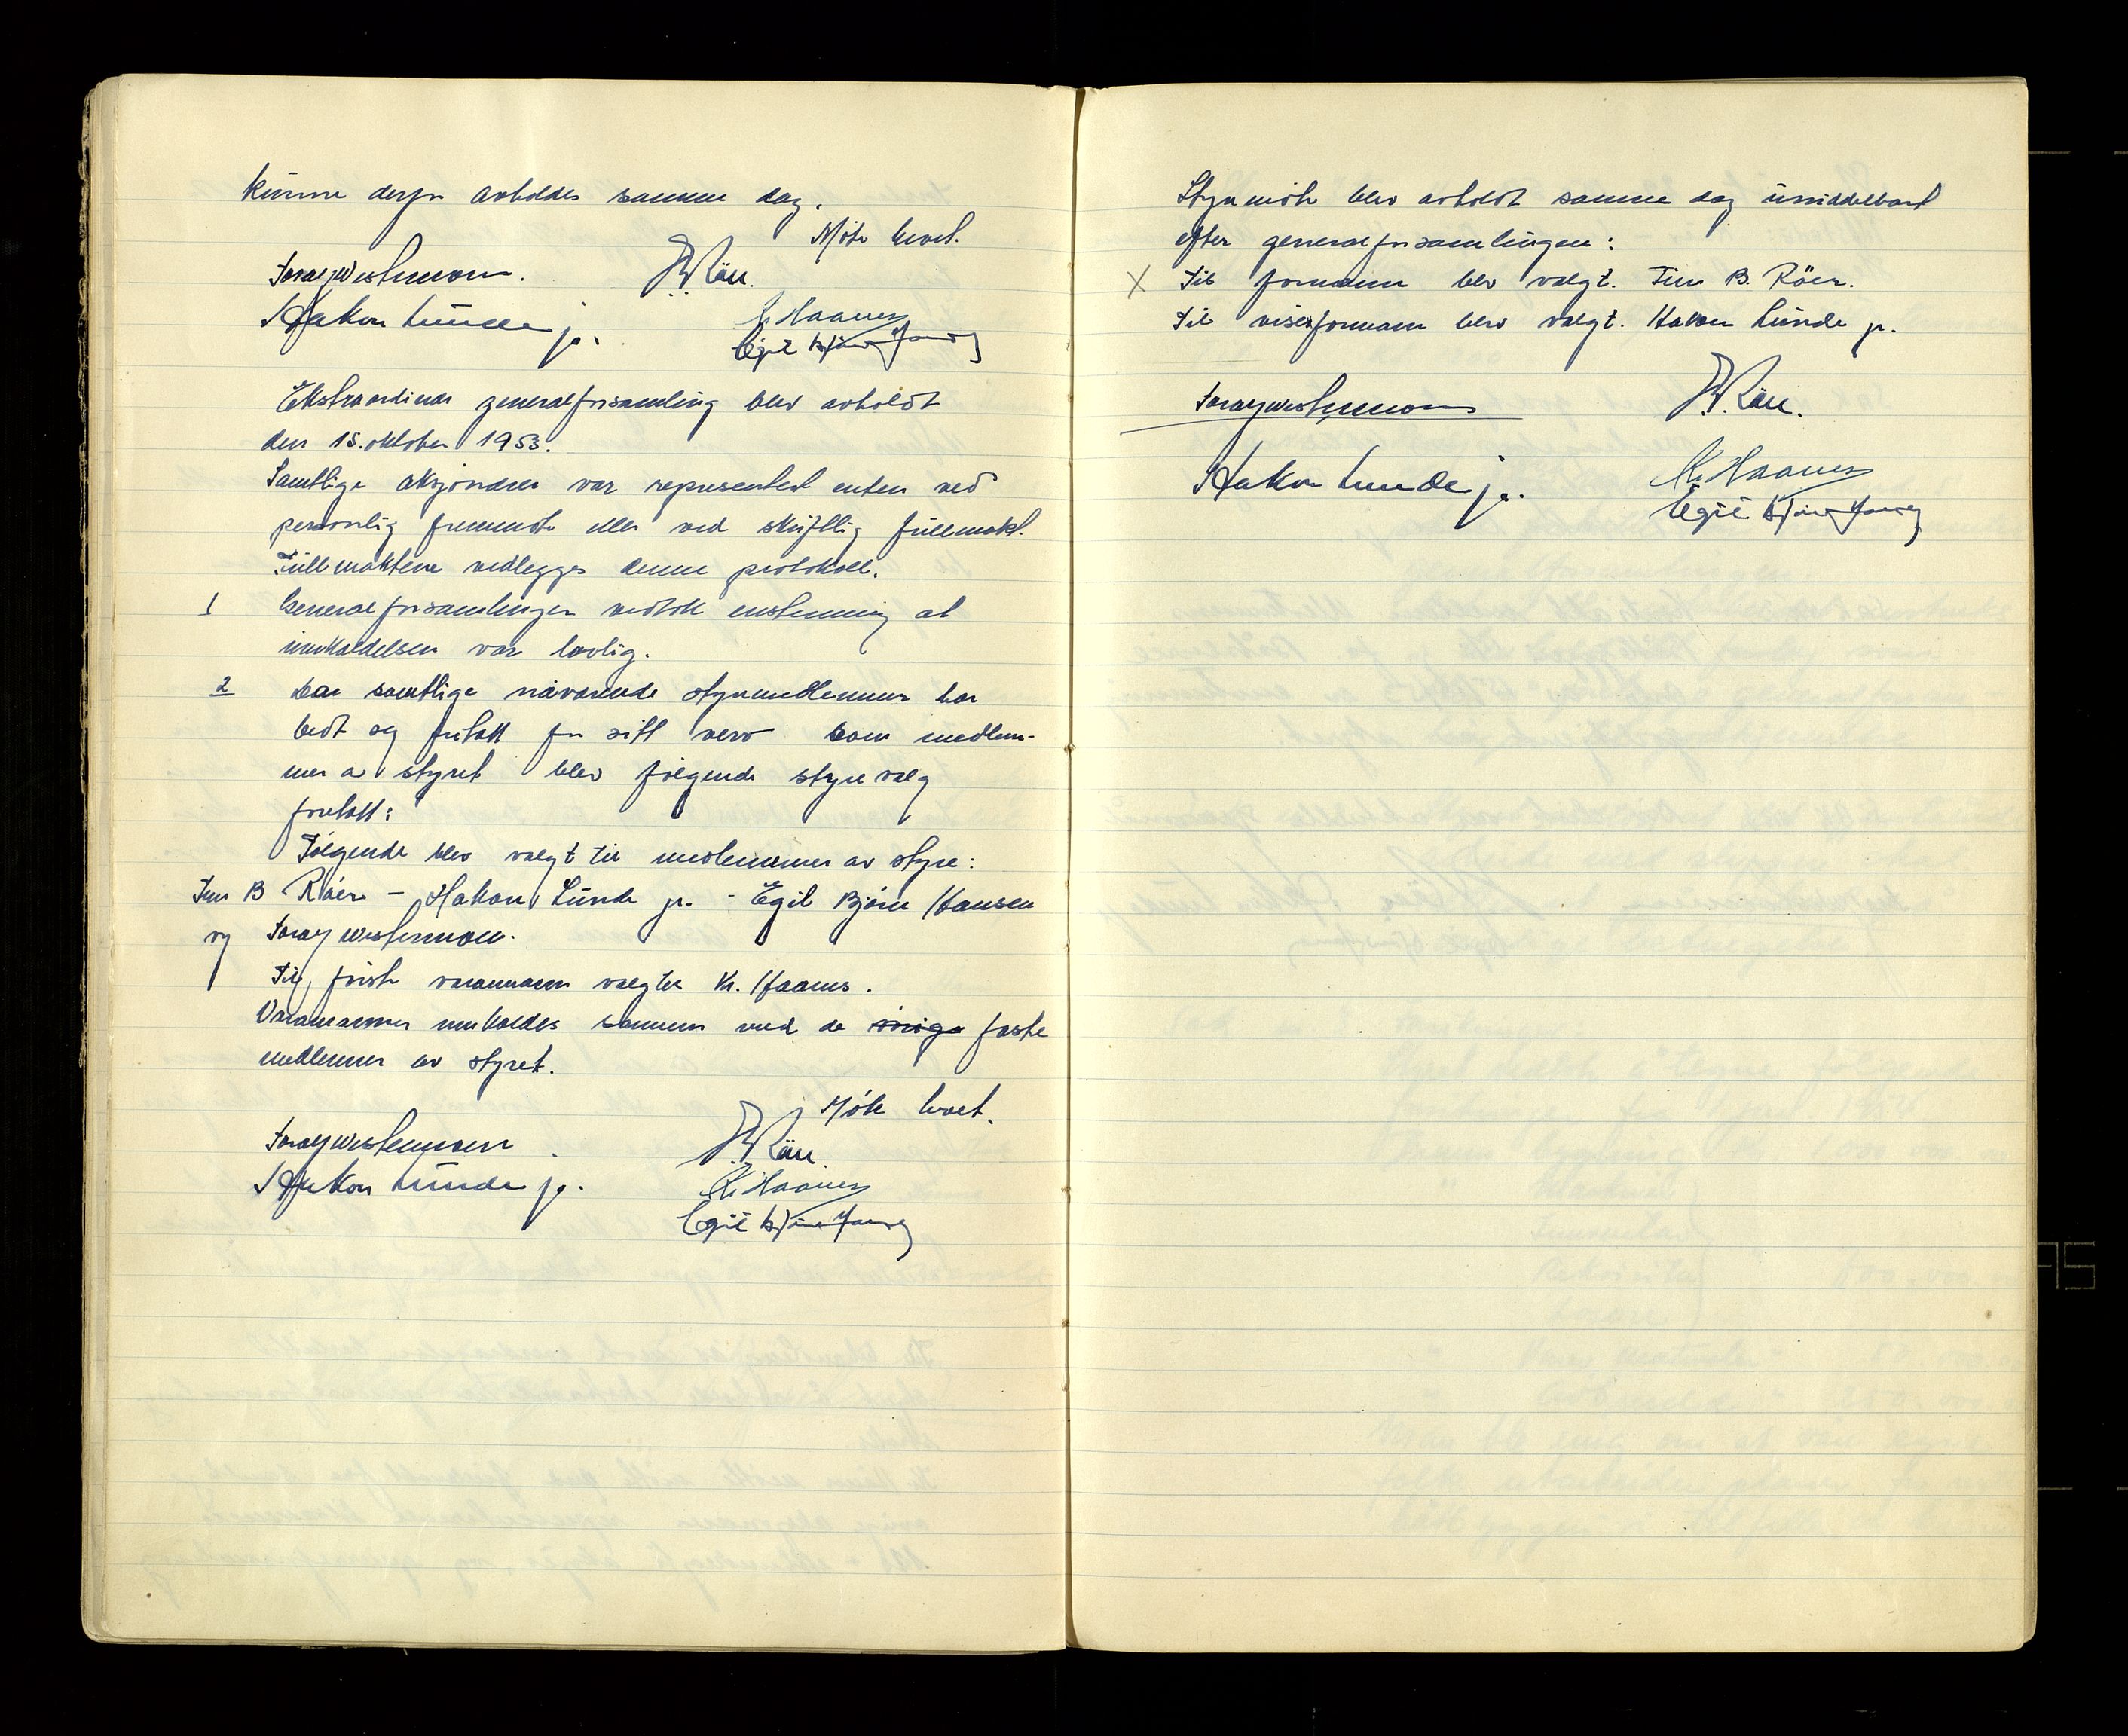 kunne derfor avholdes samme dag.
Møte hevet.
Hakon Lunde jr.
Kr. Haanes
Egil Bjørn Hansen
Ekstraordinær generalforsamling blev avholdt
den 15. oktober 1953.
Samtlige aksjonærer var representert enten ved
personlig fremmøte eller ved skriftlig fullmakt.
Fullmaktene vedlegges denne protokoll.
1 Generalforsamlingen vedtok enstemmig at
innkaldelsen var lovlig.
2 Da samtlige nåværende styremedlemmer har
bedt seg fritatt for sitt verv som medlem-
mer av styret blev følgende styrevalg
foretatt:
Følgende blev valgt til medlemmer av styre:
B Råer - Hakon Lunde jr. - Egil Bjørn Hansen
og Westermann.
Til første varamann valgtes Kr. Haanes.
Varamannen innkaldes sammen med de øvrige faste
medlemmer av styret.
Møte hevet.
Hakon Lunde jr.
Kr. Haanes
Egil Bjørn Hansen
Styremøte blev avholdt samme dag umiddelbart
efter generalforsamlingen:
X Til formann blev valgt. B. Råer.
Til viseformann blev valgt. Hakon Lunde jr.
Hakon Lunde jr.
Kr. Haanes
Egil Bjørn Hansen